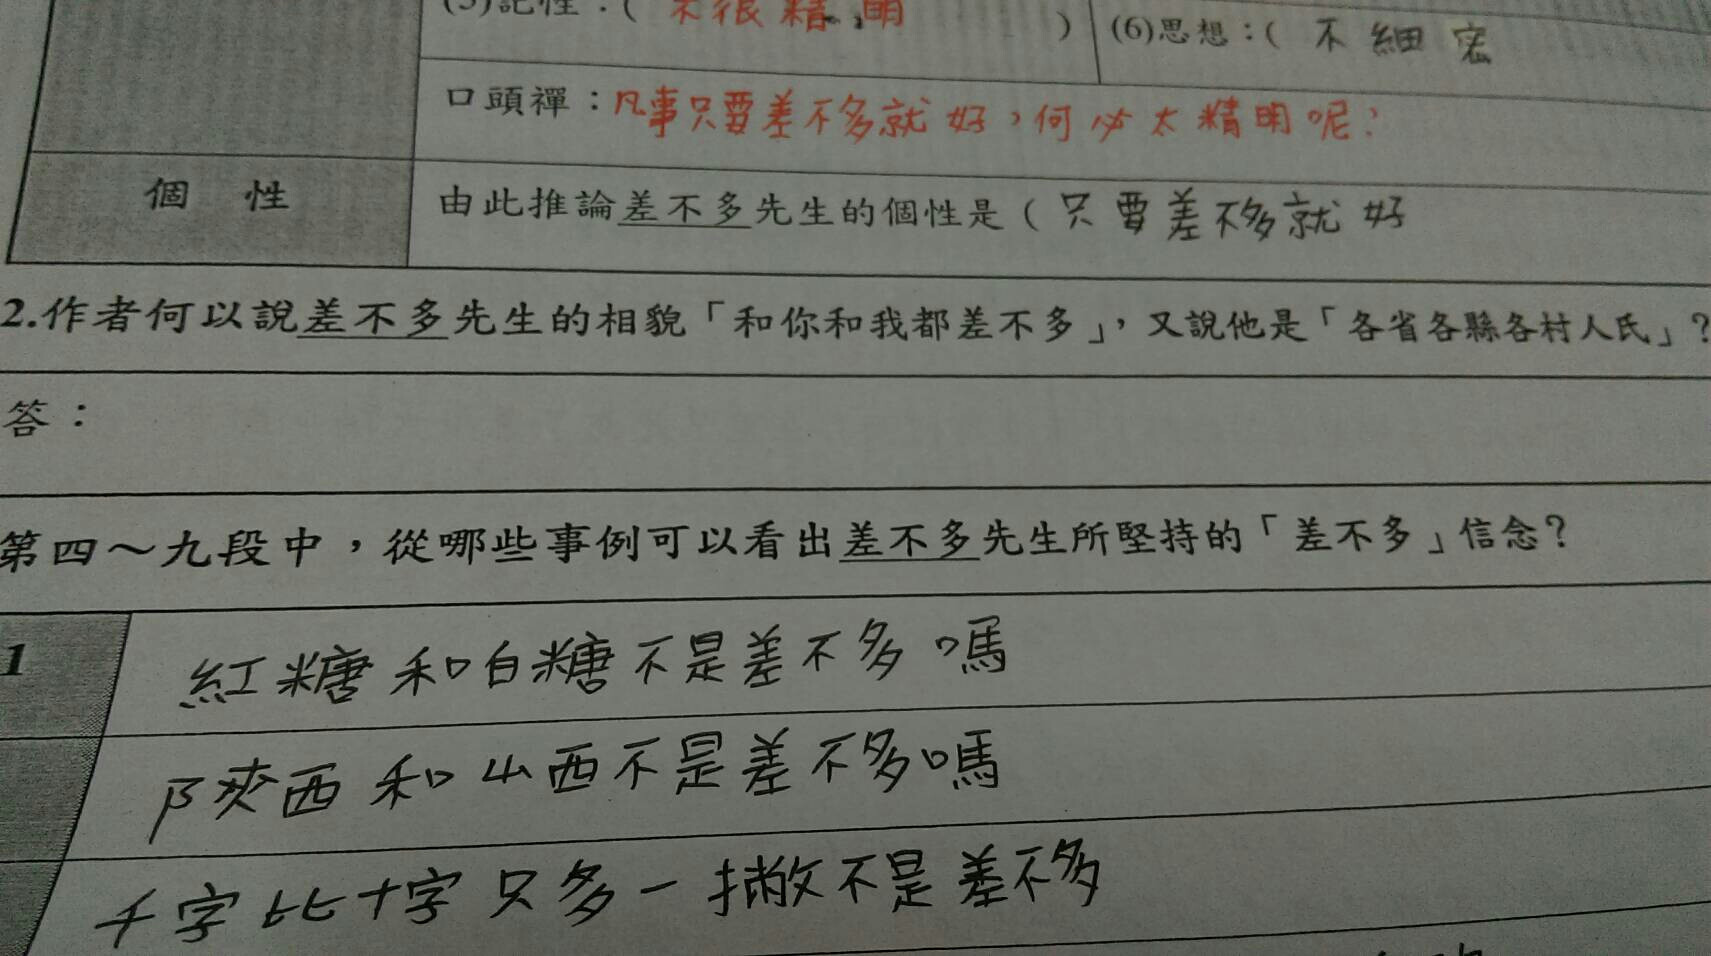 (5)記性：( 不很精明 ) (6)思想：( 不細密
口頭禪：凡事只要差不多就好，何必太精明呢？
個 性 由此推論差不多先生的個性是（只要差不多就好
2.作者何以說差不多先生的相貌「和你和我都差不多」，又說他是「各省各縣各村人氏」？
答：
第四～九段中，從哪些事例可以看出差不多先生所堅持的「差不多」信念？
1 紅糖和白糖不是差不多嗎
陝西和山西不是差不多嗎
千字比十字只多一撇不是差不多